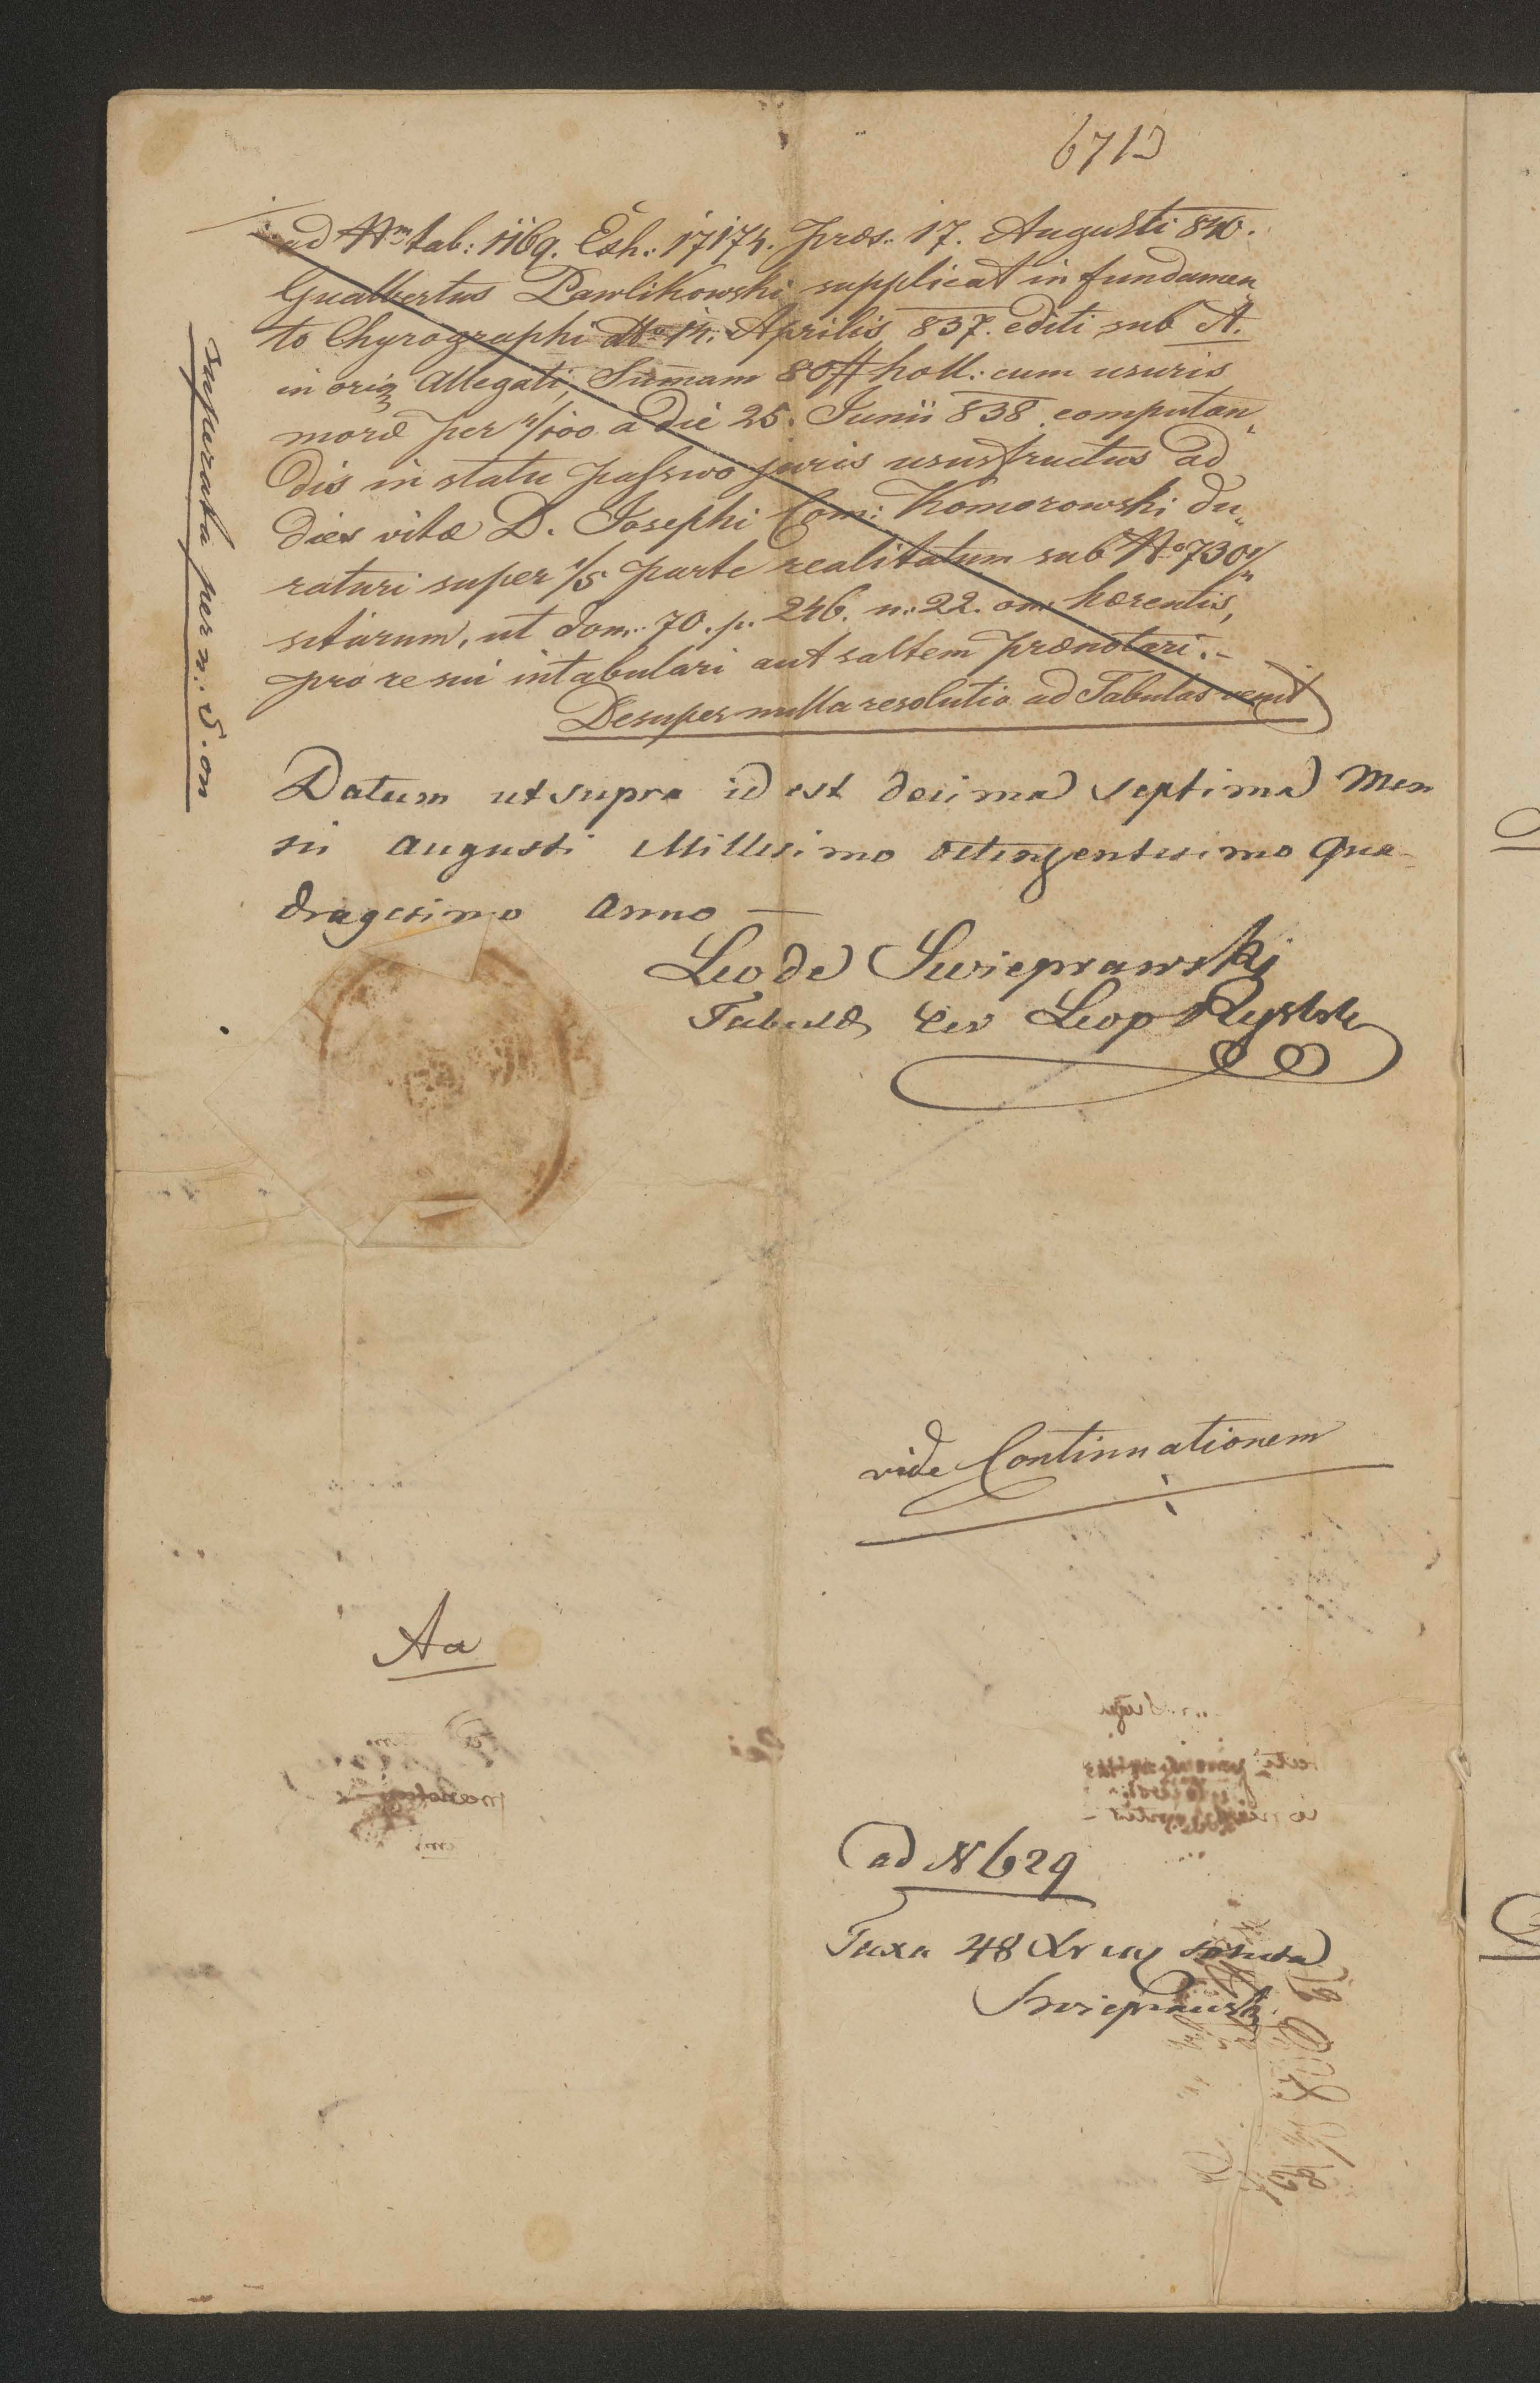 6713
ad Nm tab: 1169. Exh: 17174. præs. 17. Augusti 840.
Gualbertus Pawlikowski supplicat in fundamen„
to Chyrographi ddto 14. Aprilis 837. editi sub A.
in orig Allegati, Summam 80 # holl: cum usuris
moræ per 4/100 a die 25. Junii 838. computan„
dis in statu passivo juris ususfructus ad
dies vitæ D. Josephi Com: Komorowski du„
raturi super 1/5 parte realitatum sub No 730 4/4
sitarum, ut dom: 70. p. 246. n: 22. on. hærentis,
pro re sui intabulari aut saltem prænotari.-
Desuper nulla resolutio ad Tabulas venit
superata per n: 5. on
Datum ut supra id est decima septima Men
sis Augusti Millesimo octingentesimo qua-
dragesimo Anno —
Leo de Swieprawski
Tabulæ Leop
vide Continuationem
Aa
ad N 629
Taxa 48 Xr soluta
Swieprawski